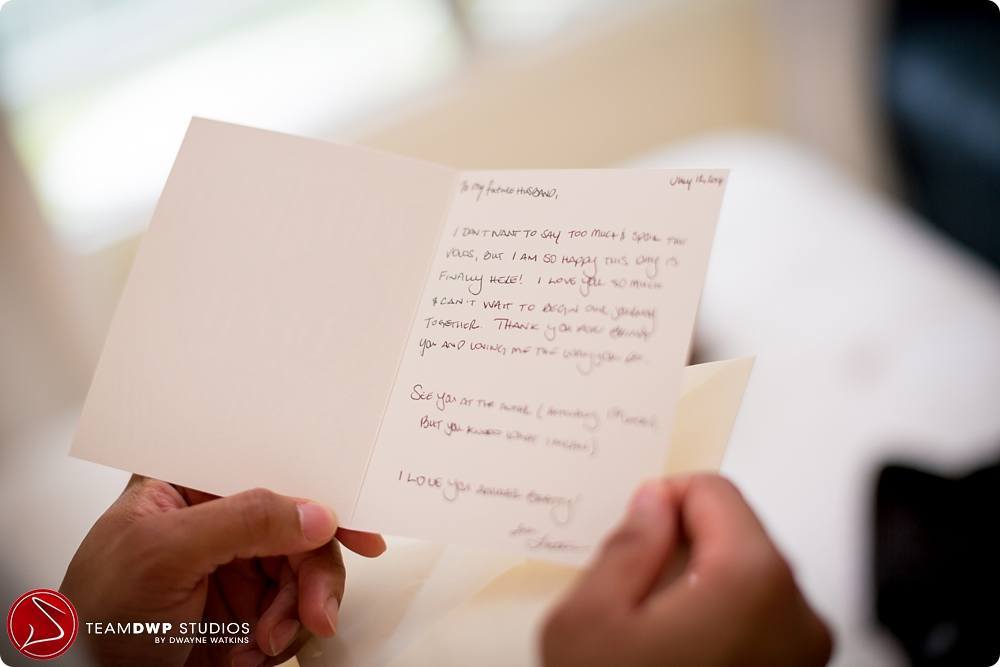 To my future HUSBAND,
I DON'T WANT TO SAY TOO MUCH & SPOIL THE
VOWS, BUT I AM SO HAPPY THIS DAY IS
FINALLY HERE! I LOVE YOU SO MUCH
& CAN'T WAIT TO BEGIN OUR JOURNEY
TOGETHER. THANK YOU FOR BEING
YOU AND LOVING ME THE WAY YOU DO.
SEE YOU AT THE ALTER (
BUT YOU KNOW WHAT I MEAN)
I LOVE YOU
TEAMDWP STUDIOS
BY DWAYNE WATKINS